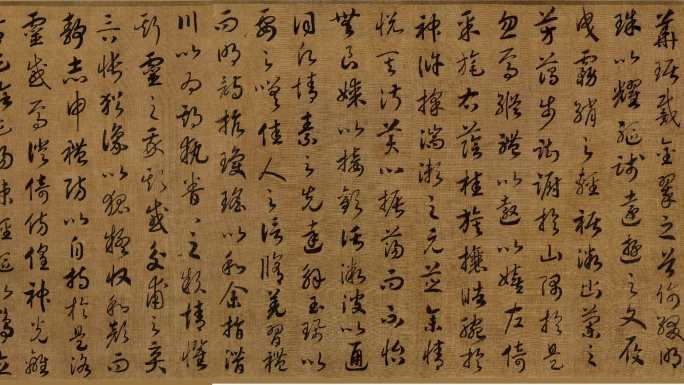 華琚戴金翠之首飾綴明
珠以耀軀踐遠遊之文履
曳霧綃之輕裾微幽蘭之
芳藹步踟躕於山隅於是
忽焉縱體以遨以嬉左倚
采旄右蔭桂旗攘皓腕於
神滸採湍瀨之玄芝余情
悅其淑美心振蕩而不怡
無良媒以接歡託微波以通
情素之先達解玉珮以
要之嗟佳人之信脩羌習禮
而明詩抗瓊瑤以和余指潛
川以為期執眷眷之款情懼
斯靈之我欺感交甫之棄
言悵猶豫以狐疑收和顏而
靜志申禮防以自持於是洛
靈感焉徙倚傍徨神光離
合乍陰乍陽竦輕軀以鶴立